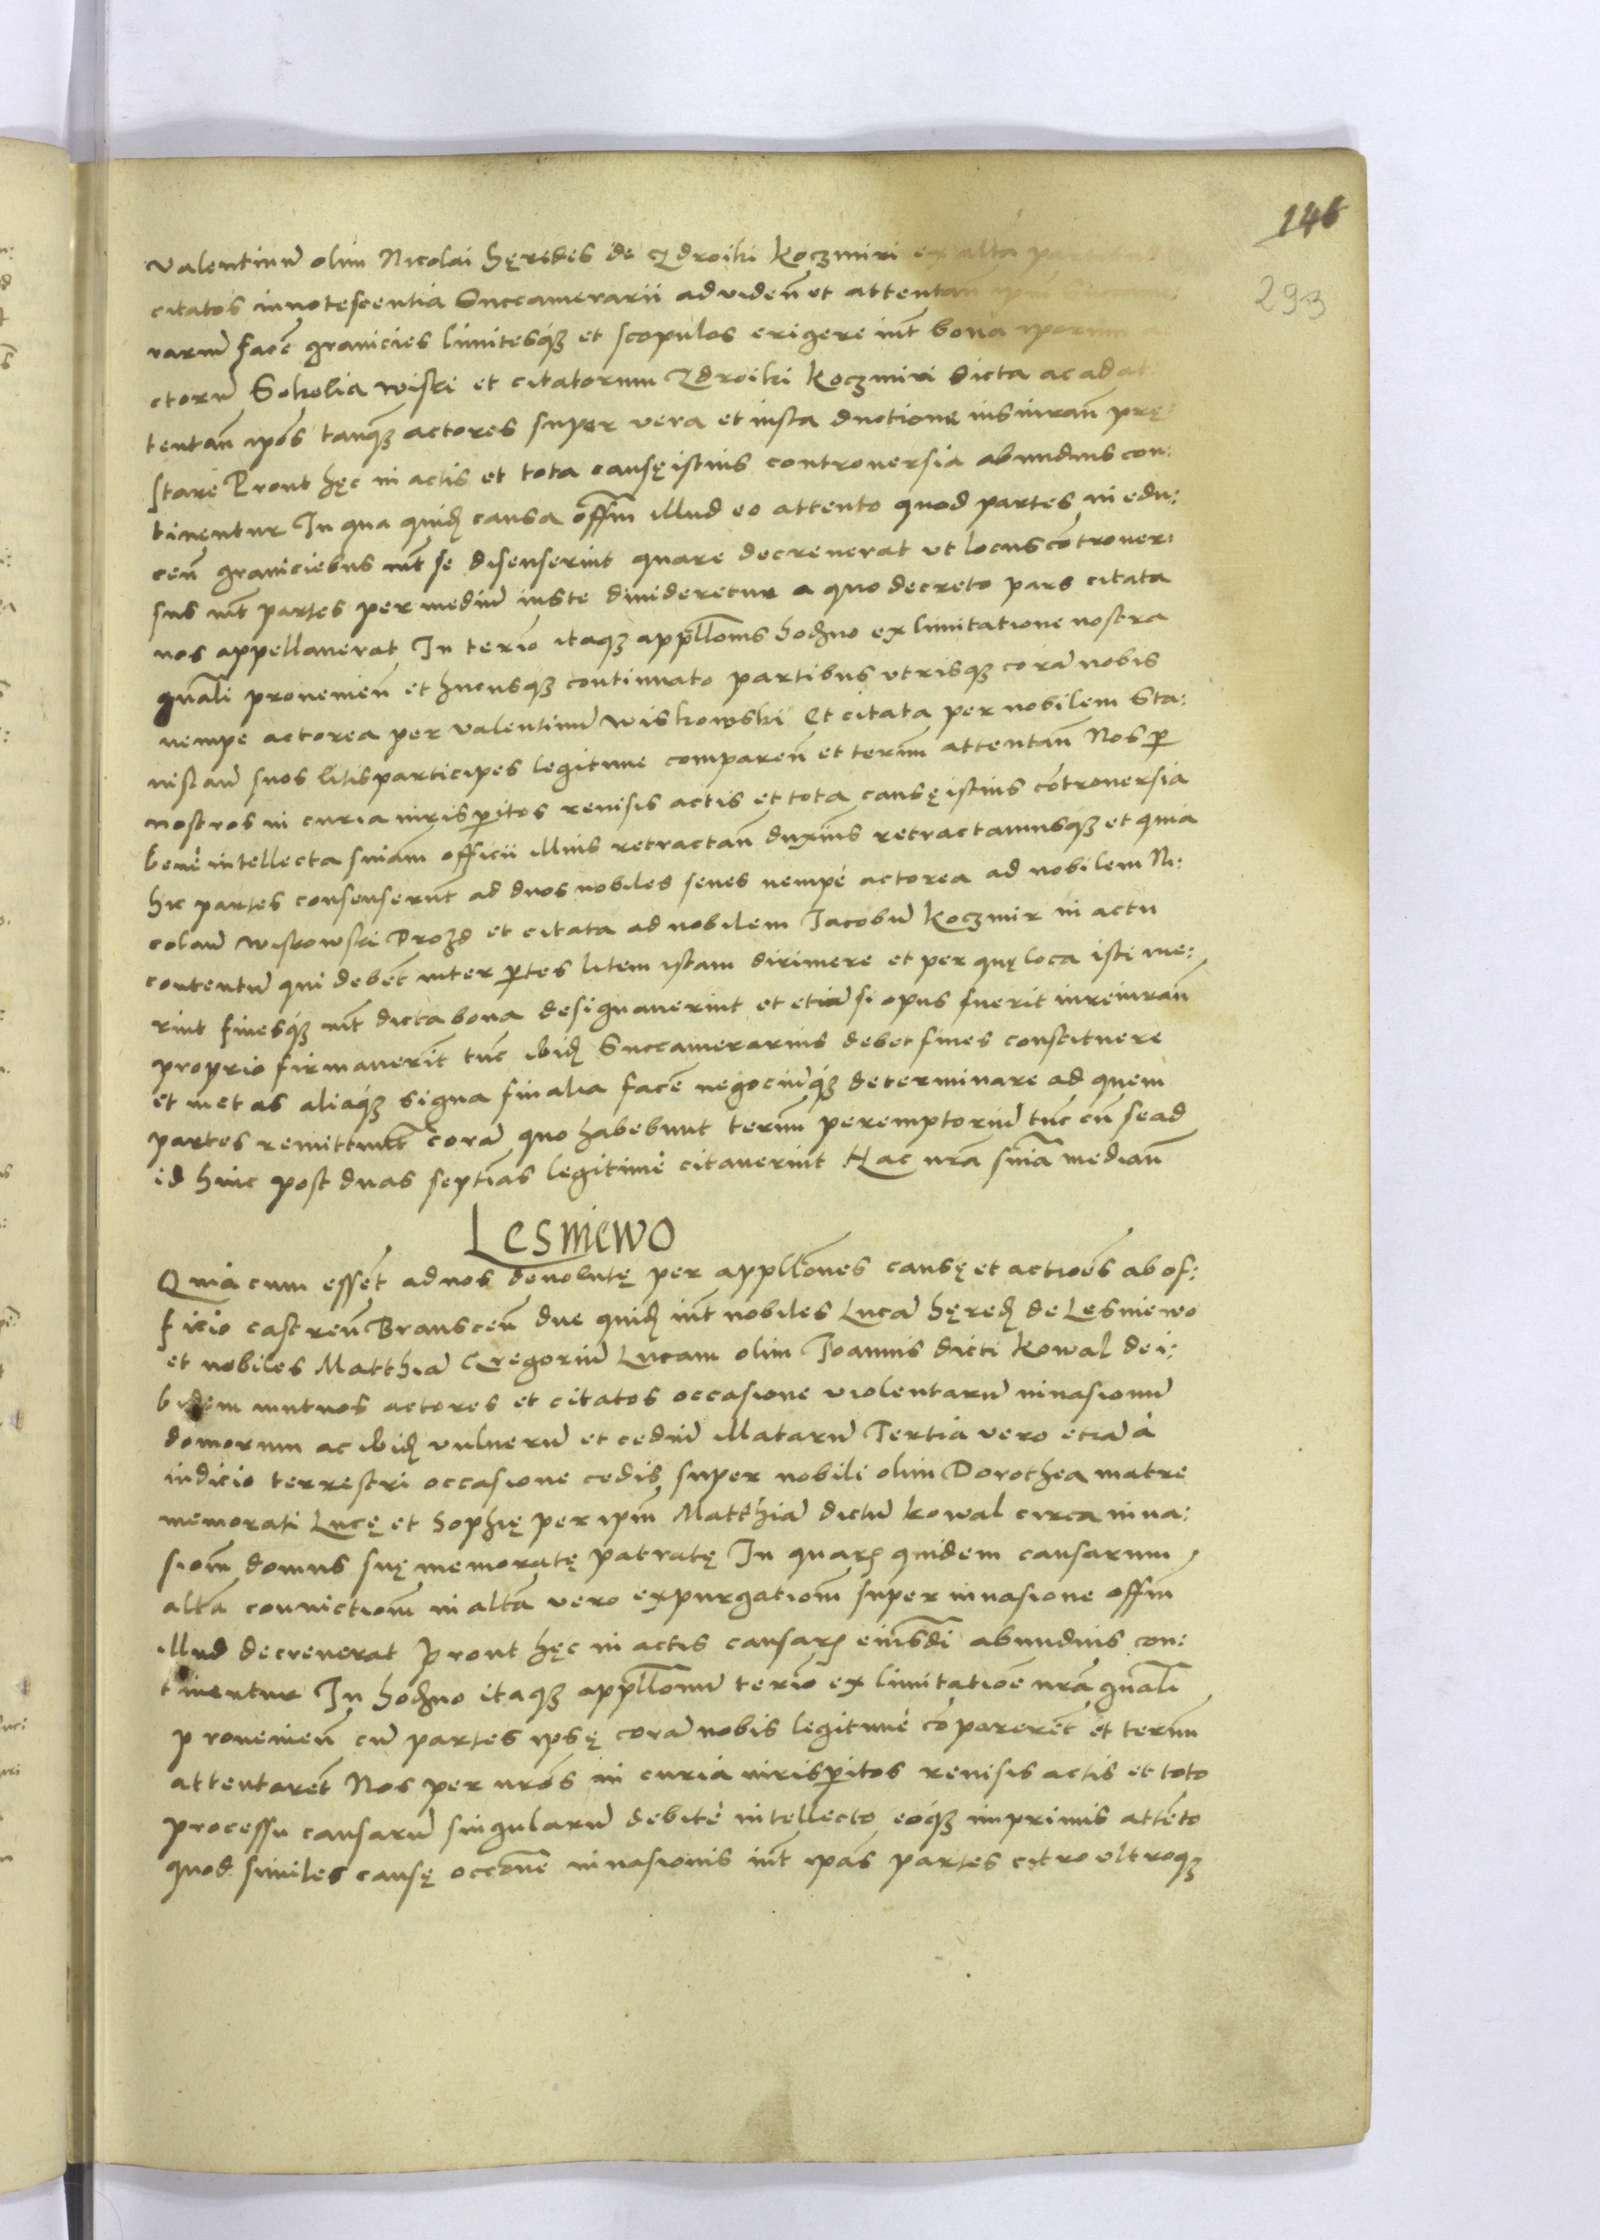 146
293
Valentinū olim Nicolai hęredes de Zdroiki Koczmiri ex alta
citatos innotescentia Succamerarii ad videñ et attentañ
rariū facē granicies limitesq3 et scopulos erigere int̄ bona iporum
ctorū Sokolia wiski et citatorum Zdroiki Koczmiri dicta ac ad at:
tentañ ipōs tanq3 actores super vera et iusta ductione iusiurañ prę:
stare Prout hęc in actis et tota causę istius controuersia abundius con:
tinentur In qua quid̄ causa offm̄ illud eo attento quod partes in edu:
ceñ graniciebus int̄ se disenserint quare decreuerat vt locus cōtrouer:
sus int̄ partes per mediū iuste diuideretur a quo decreto pars citata
nos appellauerat In term̄o itaq3 appll̄onis hodierno ex limitatione nostra
gn̄ali prouenieñ et hucusq3 continuato partibus vtrisq3 corā nobis
nempe actorea per valentinū wiskowski Et citata per nobilem Sta:
nislaū suos litis participes legitime compareñ et term̄ attentañ Nos p̱
nostros in curia iurisp̱itos reuisis actis et tota causę istius cōtrouersia
benè intellecta sniām officii illius retractañ duximus retractamusq3 et quia
hic partes consenserūt ad duos nobiles senes nempè actorea ad nobilem Ni:
colaū wiskowski Drozd et citata ad nobilem Jacobū Koczmir in actu
contentū qui debēt inter p̱tes litem istam dirimere et per quę loca isti ine:
rint finesq3 int̄ dicta bona designauerint et etiā si opus fuerit iureiurañ
proprio firmauerīt tūc ibid̄ Succamerarius debet fines constituere
et metas aliaq3 signa finalia facē negociūq3 determinare ad quem
partes remittimus corā quo habebunt term̄ peremptoriū tūc cū se ad
id hinc post duas septīas legitimè citauerint Hac nrā sniā mediañ
Lesniewo
Quia cum essēt ad nos deuolutę per appll̄ones causę et actiōes ab of:
ficio castreñ Branscen̄ due quid̄ int̄ nobiles Lucā hęred̄ de Lesniewo
et nobiles Matthiā Gregoriū Lucam olim Joannis dicti Kowal de i:
bidem mutuos actores et citatos occasione violentarū inuasionū
domorum ac ibid̄ vulnerū et cediū illatarū Tertia vero etiā à
iudicio terrestri occasione cedis super nobili olim Dorothea matre
memorati Lucę et Sophię per ipm̄ Matthiā dictū kowal circa inua:
siōm domus suę memoratę patratę In quarū quidem causarum
altā conuictiōm in altā vero expurgatiōm super inuasione offm̄
illud decreuerat Prout hęc in actis causarū eiusdī abundius con:
tinentur In hodierno itaq3 appll̄onū term̄o ex limitatiōe nrā gn̄ali
prouenieñ cū partes ipsę corā nobis legitimè cōparerēt et term̄
attentarēt Nos per nrōs in curia iurisp̱itos reuisis actis et toto
processu causarū singularū debitè intellecto eoq3 imprimis attēto
quod similes causę occōne inuasionis int̄ ipas partes citro vltroq3